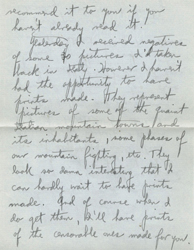 recommend it to you if you
haven't already read it.
Yesterday I received negatives
of some pictures I'd taken
back in Italy. However I haven't
had the opportunity to have
prints made. They represent
pictures of some of the quaint
Italian mountain towns, and
its inhabitants, some phases of
our mountain fighting, etc. They
look so darn interesting that I
can hardly wait to have prints
made. And of course when I
do get them, I'll have prints
of the censorable ones made for you.